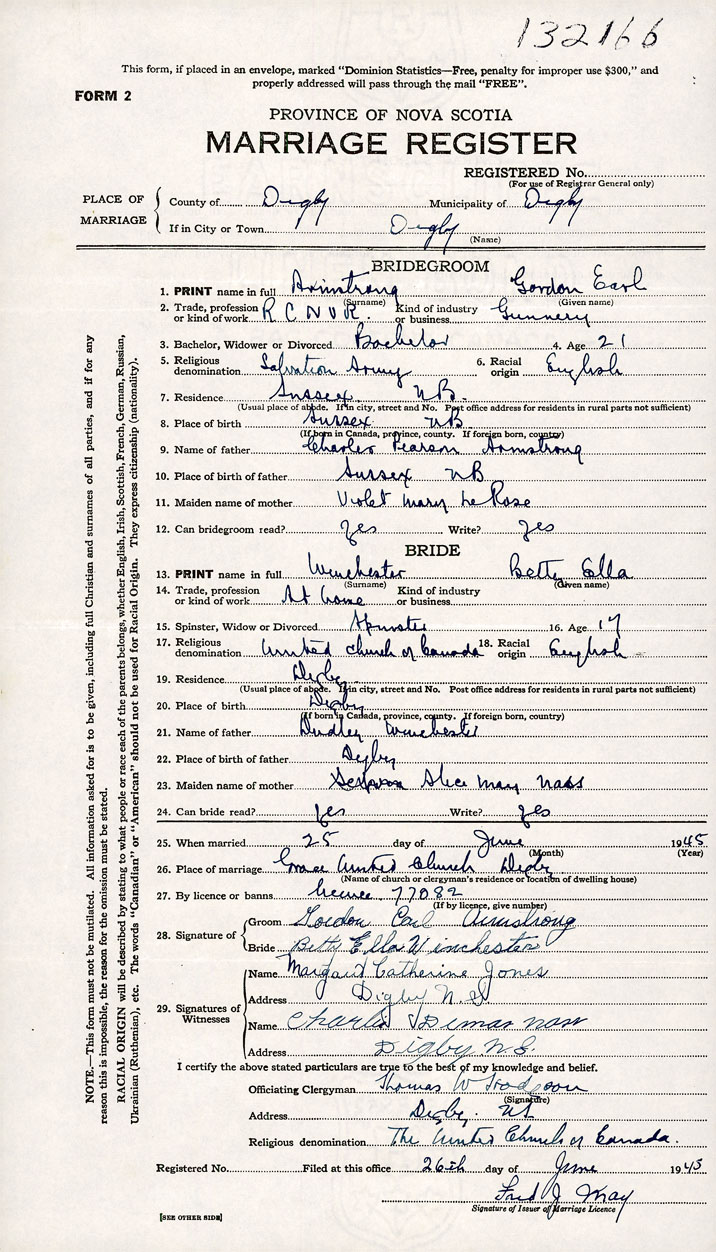 132166
This form, if placed in an envelope, marked "Dominion Statistics—Free, penalty for improper use $300," and
properly addressed will pass through the mail "FREE".
FORM 2
PROVINCE OF NOVA SCOTIA
MARRIAGE REGISTER
REGISTERED No.
(For use of Registrar General only)
PLACE OF MARRIAGE
County of Digby Municipality of Digby
If in City or Town Digby
(Name)
BRIDEGROOM
1. PRINT name in full Armstrong Gordon Earl
(Surname) (Given name)
2. Trade, profession or kind of work R C N V R. Kind of industry or business Gunnery
3. Bachelor, Widower or Divorced Bachelor 4. Age 21
5. Religious denomination Salvation Army 6. Racial origin English
7. Residence Sussex NB.
(Usual place of abode. If in city, street and No. Post office address for residents in rural parts not sufficient)
8. Place of birth Sussex NB
(If born in Canada, province, county. If foreign born, country)
9. Name of father Charles Pearson Armstrong
10. Place of birth of father Sussex NB
11. Maiden name of mother Violet Mary LeRose
12. Can bridegroom read? yes Write? yes
BRIDE
13. PRINT name in full Winchester Betty Ella
(Surname) (Given name)
14. Trade, profession or kind of work At home Kind of industry or business
15. Spinster, Widow or Divorced Spinster 16. Age 17
17. Religious denomination United Church of Canada 18. Racial origin English
19. Residence Digby
(Usual place of abode. If in city, street and No. Post office address for residents in rural parts not sufficient)
20. Place of birth Digby
(If born in Canada, province, county. If foreign born, country)
21. Name of father Dudley Winchester
22. Place of birth of father Digby
23. Maiden name of mother Alice May Nass
24. Can bride read? yes Write? yes
25. When married 25 day of June 1945
(Month) (Year)
26. Place of marriage Grace United Church Digby
(Name of church or clergyman's residence or location of dwelling house)
27. By licence or banns licence 77082
(If by licence, give number)
28. Signature of
Groom Gordon Earl Armstrong
Bride Betty Ella Winchester
29. Signatures of Witnesses
Name Margaret Catherine Jones
Address Digby N.S
Name Charles
Address Digby N.S.
I certify the above stated particulars are true to the best of my knowledge and belief.
Officiating Clergyman Thomas W Hodgson
(Signature)
Address Digby. NS
Religious denomination The United Church of Canada.
Registered No. Filed at this office 26th day of June 1943
Fred J May
Signature of Issuer of Marriage Licence
[SEE OTHER SIDE]
NOTE.—This form must not be mutilated. All information asked for is to be given, including full Christian and surnames of all parties, and if for any
reason this is impossible, the reason for the omission must be stated.
RACIAL ORIGIN will be described by stating to what people or race each of the parents belongs, whether English, Irish, Scottish, French, German, Russian,
Ukrainian (Ruthenian), etc. The words "Canadian" or "American" should not be used for Racial Origin. They express citizenship (nationality).